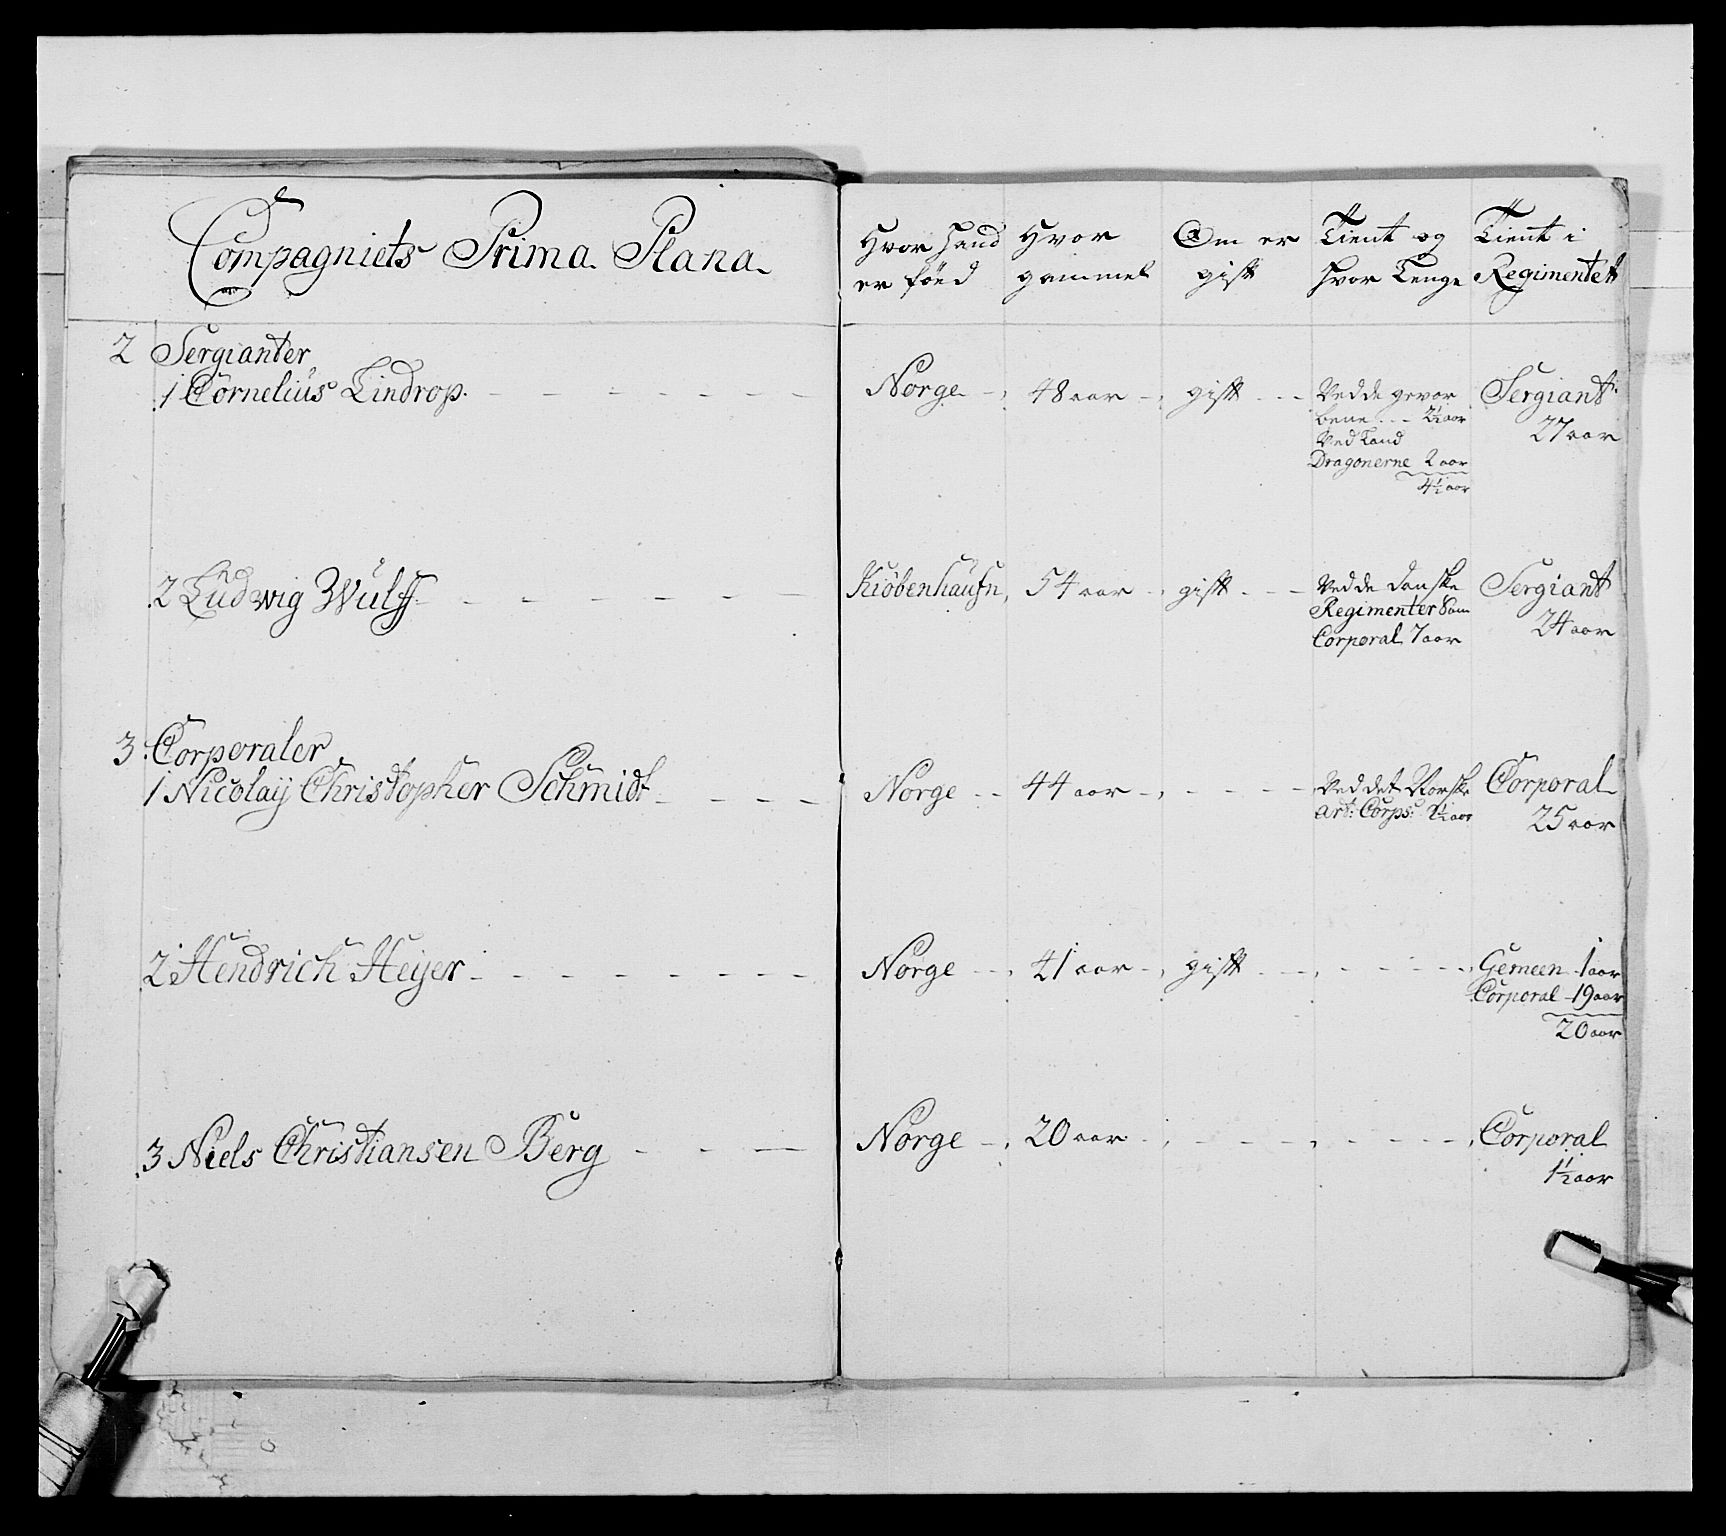 Compagniets Prima Plana
Hvor Hand er föed
Hvor gammel
Om er gift
Tient og hvor Lenge
Tient i Regimentet
2 Sergianter
1 Cornelius Lindrop.
Norge
48 aar
gift
Ved de gevor
bene 2½ aar
Ved Land
Dragonerne 2 aar
4½ aar
Sergiant
27 aar
2 Ludwig Wulff
Kiöbenhaufn
54 aar
gift
Ved de danske
Regimenter Som
Corporal 7 aar
Sergiant
24 aar
3 Corporaler
1 Nicolaÿ Christopher Schmidt
Norge
44 aar
Ved det Norske
Art: Corps: 2½ aar
Corporal
25 aar
2 Hendrich Heyer
Norge
41 aar
gift
Gemeen 1 aar
Corporal 19 aar
20 aar
3 Niels Christiansen Berg
Norge
20 aar
Corporal
1½ aar